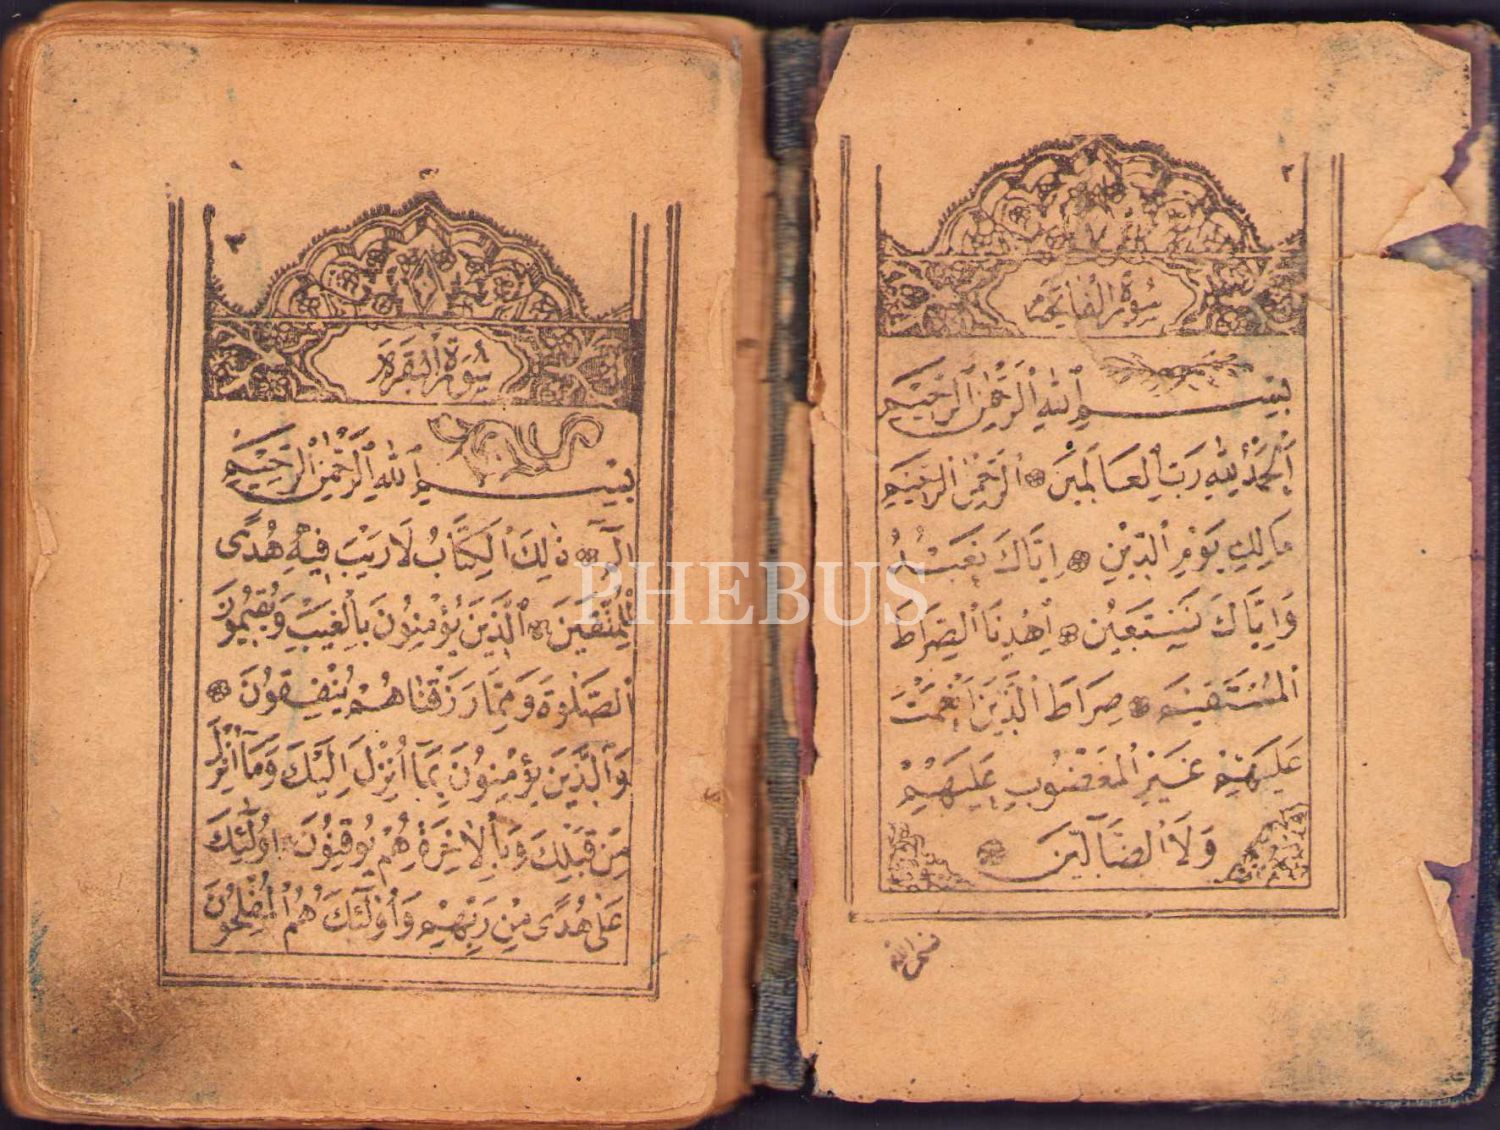 ٢
سُورَةُ الْفَاتِحَه
بِسْمِ اللهِ الرَّحْمٰنِ الرَّحِيمِ
اَلْحَمْدُ لِلّٰهِ رَبِّ الْعَالَمِينَ الرَّحْمٰنِ الرَّحِيمِ
مَالِكِ يَوْمِ الدِّينِ اِيَّاكَ نَعْبُدُ
وَاِيَّاكَ نَسْتَعِينُ اِهْدِنَا الصِّرَاطَ
الْمُسْتَقِيمَ صِرَاطَ الَّذِينَ اَنْعَمْتَ
عَلَيْهِمْ غَيْرِ الْمَغْضُوبِ عَلَيْهِمْ
وَلَا الضَّآلِّينَ
٣
سُورَةُ الْبَقَرَه
بِسْمِ اللهِ الرَّحْمٰنِ الرَّحِيمِ
الٓمٓ ذٰلِكَ الْكِتَابُ لَا رَيْبَ فِيهِ هُدًى
لِلْمُتَّقِينَ الَّذِينَ يُؤْمِنُونَ بِالْغَيْبِ وَيُقِيمُونَ
الصَّلٰوةَ وَمِمَّا رَزَقْنَاهُمْ يُنْفِقُونَ
وَالَّذِينَ يُؤْمِنُونَ بِمَا اُنْزِلَ اِلَيْكَ وَمَآ اُنْزِلَ
مِنْ قَبْلِكَ وَبِالْاٰخِرَةِ هُمْ يُوقِنُونَ اُولٰٓئِكَ
عَلٰى هُدًى مِنْ رَبِّهِمْ وَاُولٰٓئِكَ هُمُ الْمُفْلِحُونَ
PHEBUS